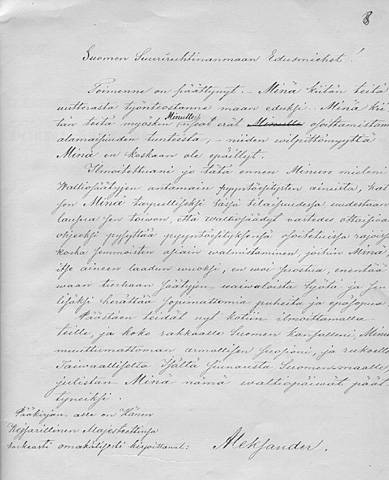 8
Suomen Suuriruhtinanmaan Edusmiehet!
Toimenne on päättynyt. Minä kiitän teitä
uutterasta työnteostanne maan eduksi. Minä kii
tän teitä myöskin Minulle osoittamistanne
alamaisuuden tunteista, niiden wilpittömyyttä
Minä en koskaan ole epäillyt.
Ilmoitettuani jo tätä ennen Minun mieleni
Waltiosäätyjen antamain pyyntöesitysten aineista, kat
son Minä tarpeelliseksi tässä tilaisuudessa uudestaan
lausua sen toiwon, että waltiosäädyt wastedes ottaisiwat
ohjeeksi pysyttää pyyntöesityksensä osoitetuissa rajoissa
koska semmoisten asiain walmistaminen, joihin Minä,
itse aineen laadun wuoksi, en woi suostua, enentää
waan suotaan säätyjen waiwaloista työtä ja sen
lisäksi herättää sopimattomia puheita ja epäsopua.
Päästäen teidät nyt kotiin ilmoittamalla
teille, ja koko rakkaalle Suomen kansalleni, Minun
muuttumattoman armollisen suosioni, ja rukoellen
Taiwaalliselta Isältä siunausta Suomenmaalle,
julistan Minä nämä waltiopäiwät päät
tyneiksi.
Pääkirjan alle on Hänen
Keisarillinen Majesteettinsa
korkeasti omakätisesti kirjoittanut:
Aleksander.